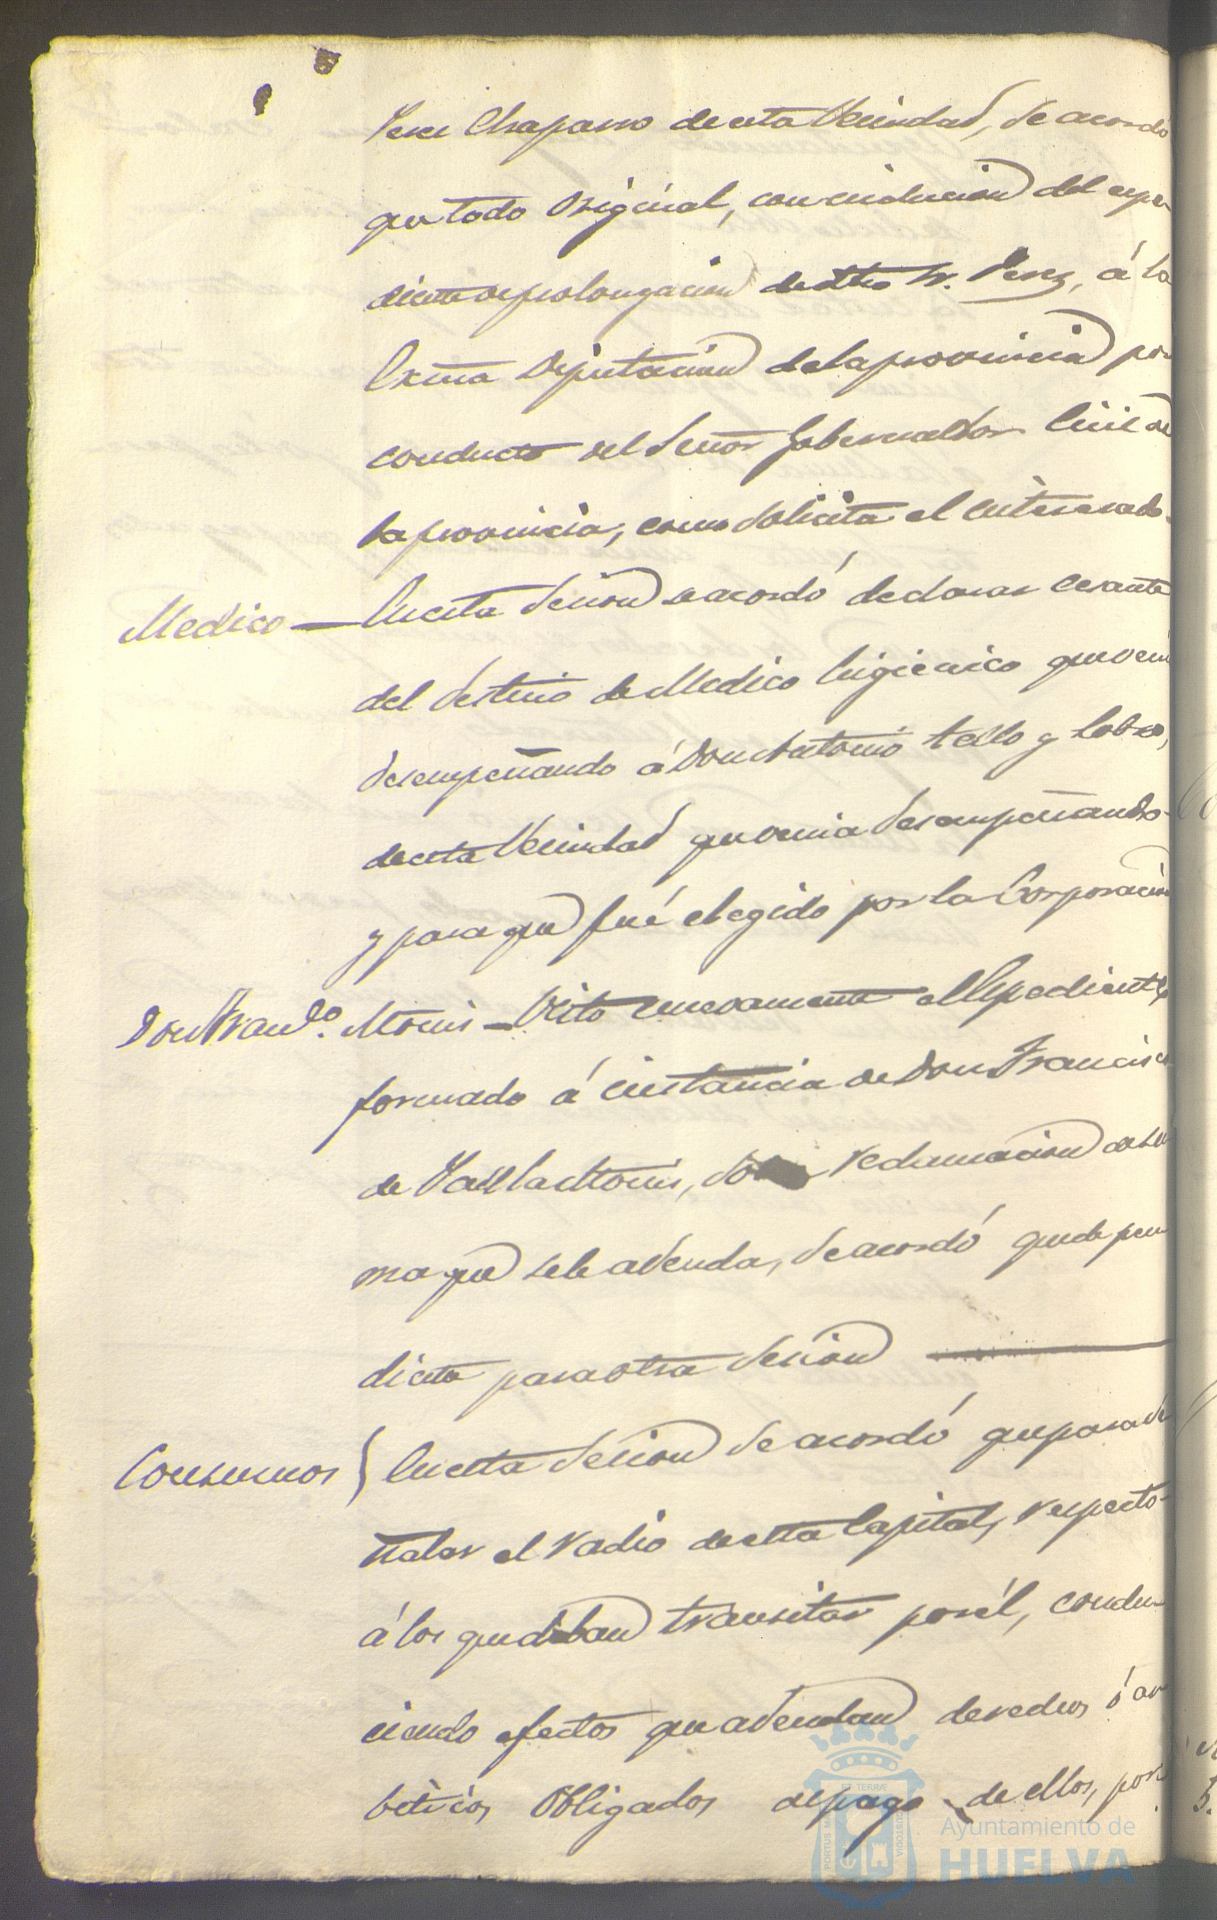 Perez Chaparro de esta Vecindad, se acordó
que todo original, con inclusion del espe-
diente de prolongacion de dtho Sr. Perez, á la
Exma Diputacion de la provincia por
conducto del Señor Gobernador Civil de
la provincia, como solicita el interesado.
Medico — En esta Sesion se acordó declarar cesante
del destino de Medico higienico que veni
desempeñando á Don Antonio Tello y Lobo,
de esta Vecindad que venia desempeñando
y para que fué elegido por la Corporacion
Don Franco. Monis — Visto nuevamente el Espediente
formado á instancia de Don Francisco
de Paula Monis, reclamacion de su
ma que se le adeuda, se acordó quede pen
diente para otra Sesion
Consumos } En esta Sesion se acordó que para se
ñalar el radio de esta Capital, respecto
á los que deban transitar por él, condu-
ciendo efectos que adeudan derechos ó ar
bitrios, obligados de pago de ellos, por
Ayuntamiento de
HUELVA